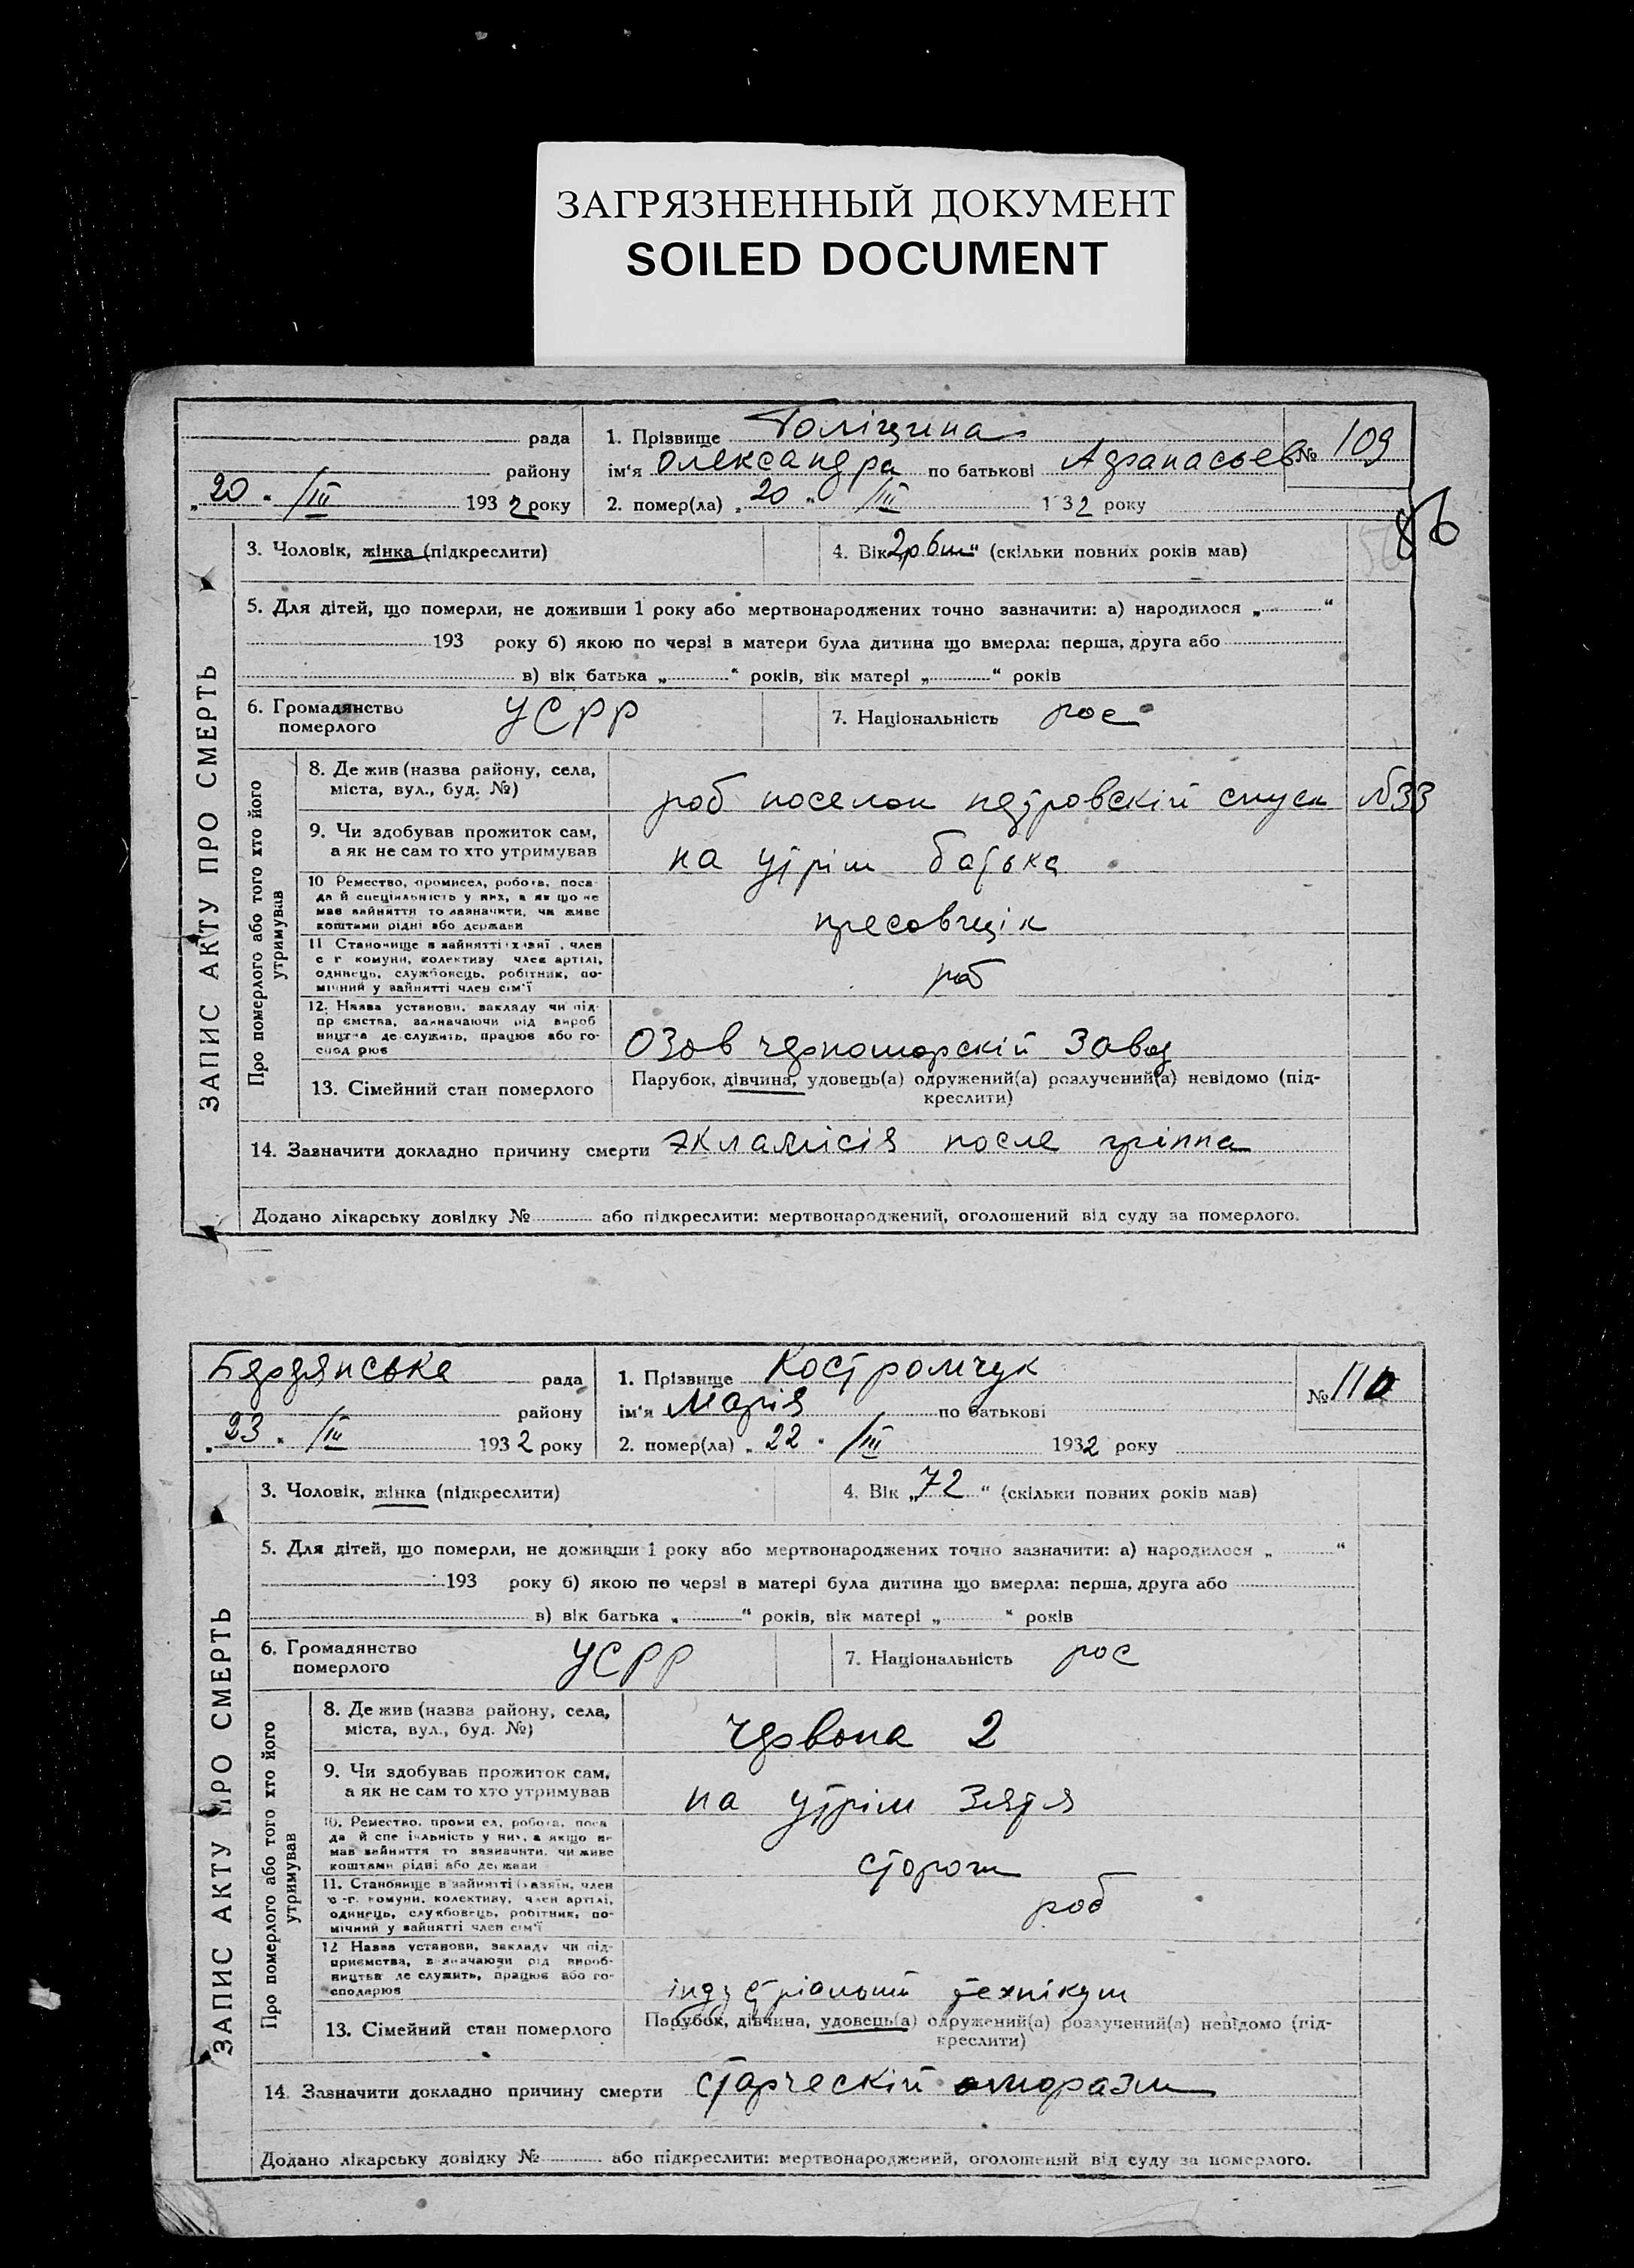 ЗАГРЯЗНЕННЫЙ ДОКУМЕНТ
SOILED DOCUMENT
рада
району
„20“ /III 1932 року
1. Прізвище Голіцина
ім'я Олександра по батькові Афанасьев
2. помер(ла) „20“ /III 1932 року
№ 109
86
ЗАПИС АКТУ ПРО СМЕРТЬ
3. Чоловік, жінка (підкреслити)
4. Вік 2р 6м“ (скільки повних років мав)
5. Для дітей, що померли, не доживши 1 року або мертвонароджених точно зазначити: а) народилося „ “
193 року б) якою по черзі в матери була дитина що вмерла: перша, друга або
в) вік батька „ “ років, вік матері „ “ років
6. Громадянство
померлого
УСРР
7. Національність рос
Про померлого або того хто його
утримував
8. Де жив (назва району, села,
міста, вул., буд. №)
роб поселок петровскій спуск №33
9. Чи здобував прожиток сам,
а як не сам то хто утримував
на утрім батька
10 Ремество, промисел, робота, поса-
да й спеціяльність у них, а як що не
мав зайняття то зазначити, чи живе
коштами рідні або держави
пресовщік
11 Становище в зайнятті хазяї , член
с г комуни, колективу член артілі,
одинець, службовець, робітник, по-
мічний у зайнятті член сім'ї
роб
12. Назва установи, закладу чи під-
пр ємства, зазначаючи рід вироб
ництва де служить, працює або го-
спод рює
Озов черноморскій Завод
13. Сімейний стан померлого
Парубок, дівчина, удовець(а) одружений(а) розлучений(а) невідомо (під-
креслити)
14. Зазначити докладно причину смерти экламісія после гріппа
Додано лікарську довідку № або підкреслити: мертвонароджений, оголошений від суду за померлого.
Бердянська рада
району
„23“ /III 1932 року
1. Прізвище Костромчук
ім'я Марія по батькові
2. помер(ла) „22“ /III 1932 року
№ 110
ЗАПИС АКТУ ПРО СМЕРТЬ
3. Чоловік, жінка (підкреслити)
4. Вік „72“ (скільки повних років мав)
5. Для дітей, що померли, не доживши 1 року або мертвонароджених точно зазначити: а) народилося „ “
193 року б) якою по черзі в матері була дитина що вмерла: перша, друга або
в) вік батька „ “ років, вік матері „ “ років
6. Громадянство
померлого
УСРР
7. Національність рос
Про померлого або того хто його
утримував
8. Де жив (назва району, села,
міста, вул., буд. №)
Червона 2
9. Чи здобував прожиток сам,
а як не сам то хто утримував
на утрім Зятя
10. Ремество, проми ел, робота, поса
да й спе іяльність у них, а якщо не
мав зайняття то зазначити, чи живе
коштами рідні або держави
сторож
11. Становище в зайнятті (хазяїн, член
с-г. комуни, колективу, член артілі,
одинець, службовець, робітник, по-
мічний у зайнятті член сім'ї
роб
12 Назва установи, закладу чи під-
приємства, зазначаючи рід вироб-
ництва де служить, працює або го-
сподарює
індустріальний технікум
13. Сімейний стан померлого
Парубок, дівчина, удовець(а) одружений(а) розлучений(а) невідомо (під-
креслити)
14. Зазначити докладно причину смерти старческій маразм
Додано лікарську довідку № або підкреслити: мертвонароджений, оголошений від суду за померлого.